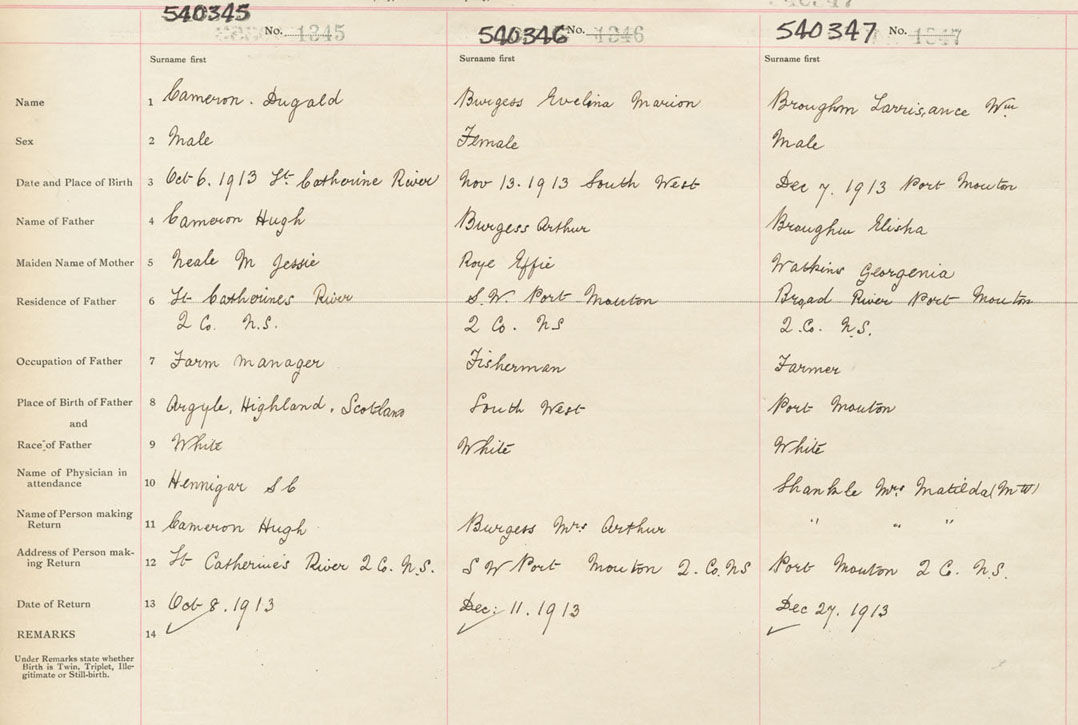 540345 No. 1345 540346 No. 1346 540347 No. 1347
Surname first Surname first Surname first
Name 1 Cameron. Dugald Burgess Evelina Marion Broughm Larris,ance Wm
Sex 2 Male Female Male
Date and Place of Birth 3 Oct 6. 1913 St. Catherine River Nov 13. 1913 South West Dec 7. 1913 Port Mouton
Name of Father 4 Cameron Hugh Burgess Arthur Broughm Elisha
Maiden Name of Mother 5 Neale M Jessie Roye Effie Watkins Georgenia
Residence of Father 6 St Catherines River S.W. Port Mouton Broad River Port Mouton
Q Co. N.S. Q Co. NS Q.Co. N.S.
Occupation of Father 7 Farm Manager Fisherman Farmer
Place of Birth of Father 8 Argyle, Highland, Scotland South West Port Mouton
and
Race of Father 9 White White White
Name of Physician in
attendance 10 Hennigar S C Shankle Mrs Matilda (M-W)
Name of Person making
Return 11 Cameron Hugh Burgess Mrs Arthur " " "
Address of Person mak-
ing Return 12 St Catherine's River Q Co. N.S. S W Port Mouton Q. Co. NS Port Mouton Q Co. N.S.
Date of Return 13 Oct 8. 1913 Dec. 11. 1913 Dec 27. 1913
REMARKS 14
Under Remarks state whether
Birth is Twin, Triplet, Ille-
gitimate or Still-birth.